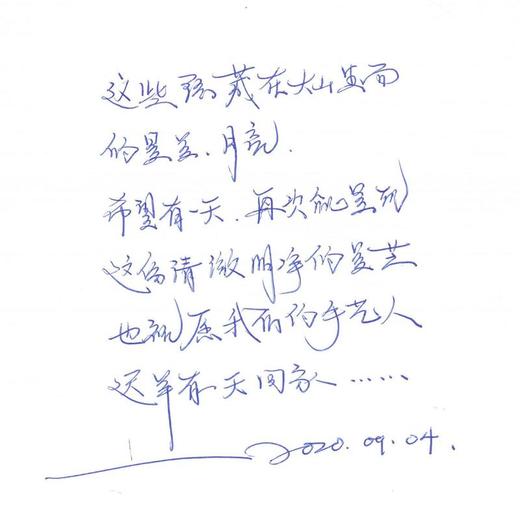 这些珍藏在大山里面
的星星、月亮.
希望有一天.再次能呈现
这份清澈明净的美
也祝愿我们的手艺人
迟早有一天回家……
2020.09.04.